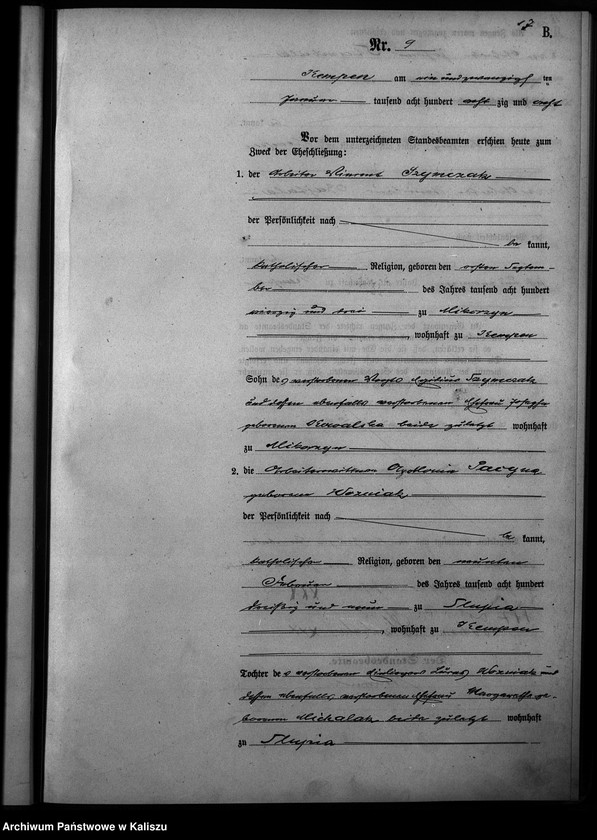 17
B.
Nr. 9
Kempen am ein und zwanzigsten
Januar tausend acht hundert acht zig und acht
Vor dem unterzeichneten Standesbeamten erschien heute zum
Zweck der Eheschließung:
1. der Arbeiter Vincent Szymczak
der Persönlichkeit nach
be kannt,
katholischer Religion, geboren den ersten Septem-
ber des Jahres tausend acht hundert
vierzig und drei zu Mikorzyn
, wohnhaft zu Kempen
Sohn des verstorbenen Szymczak
und dessen ebenfalls verstorbenen Ehefrau Josepha
geborenen Kowalska beide zuletzt wohnhaft
zu Mikorzyn
2. die Arbeiterwittwe Apollonia Pacyna
geborene Wozniak
der Persönlichkeit nach
be kannt,
katholischer Religion, geboren den neunten
Februar des Jahres tausend acht hundert
dreißig und neun zu Slupia
, wohnhaft zu Kempen
Tochter des verstorbenen Lucas Wozniak und
dessen ebenfalls verstorbenen Ehefrau Margaretha ge-
borenen Michalak, beide zuletzt wohnhaft
zu Slupia
Archiwum Państwowe w Kaliszu